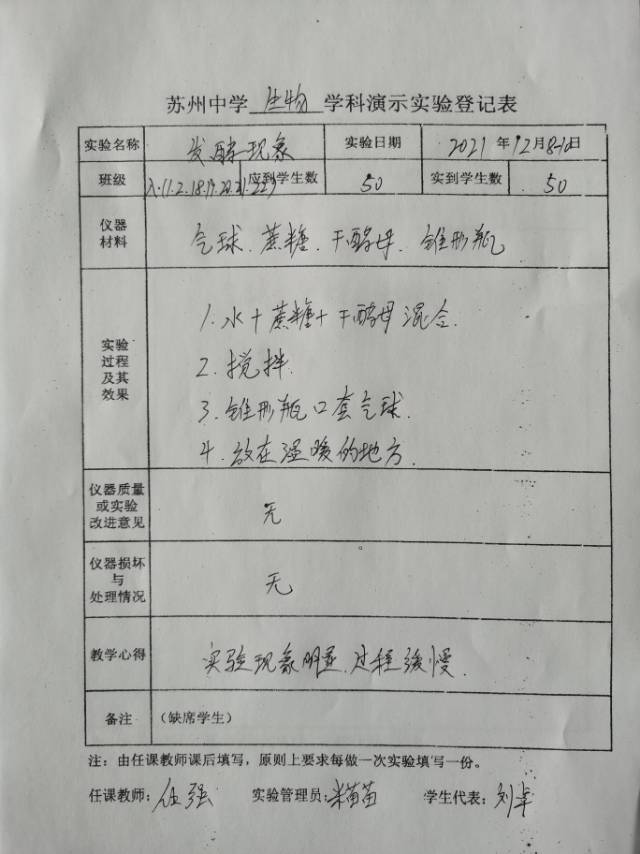 苏州中学 生物 学科演示实验登记表
实验名称 发酵现象 实验日期 2021 年 12月8-10日
班级 应到学生数 50 实到学生数 50
仪器
材料
气球、蔗糖、干酵母、锥形瓶
实验
过程
及其
效果
1.水+蔗糖+干酵母混合.
2.搅拌
3.锥形瓶口套气球.
4.放在温暖的地方.
仪器质量
或实验
改进意见
无
仪器损坏
与
处理情况
无
教学心得 实验现象明显、过程缓慢.
备注 (缺席学生)
注:由任课教师课后填写,原则上要求每做一次实验填写一份。
任课教师:伍强 实验管理员:米苗苗 学生代表:刘卓